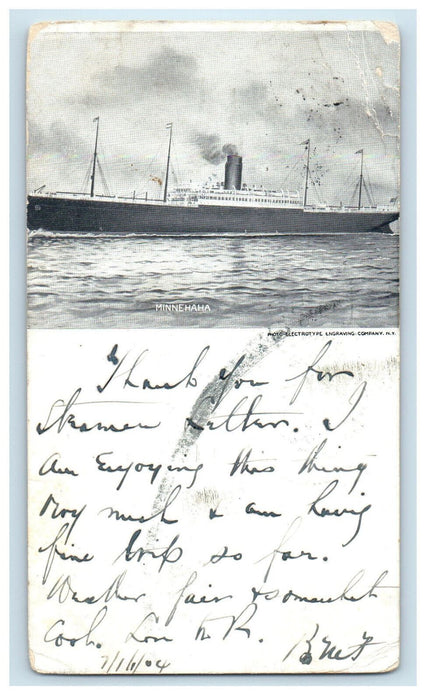 MINNEHAHA
PHOTO-ELECTROTYPE ENGRAVING COMPANY. N.Y.
Thank you for
Steamer Letter. I
am Enjoying this thing
very much & am having
fine trip so far.
Weather fair & somewhat
Cool. Love to R.
7/16/04